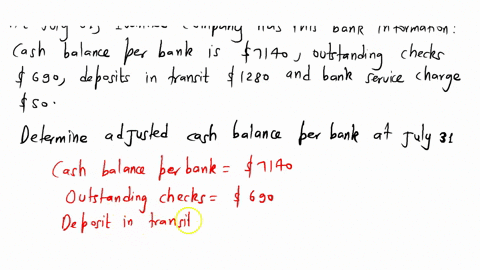 July 31, Company has this bank information:
Cash balance per bank is $7140, outstanding checks
$690, deposits in transit $1280 and bank service charge
$50.
Determine adjusted cash balance per bank at July 31
Cash balance per bank = $7140
Outstanding checks = $690
Deposit in transit